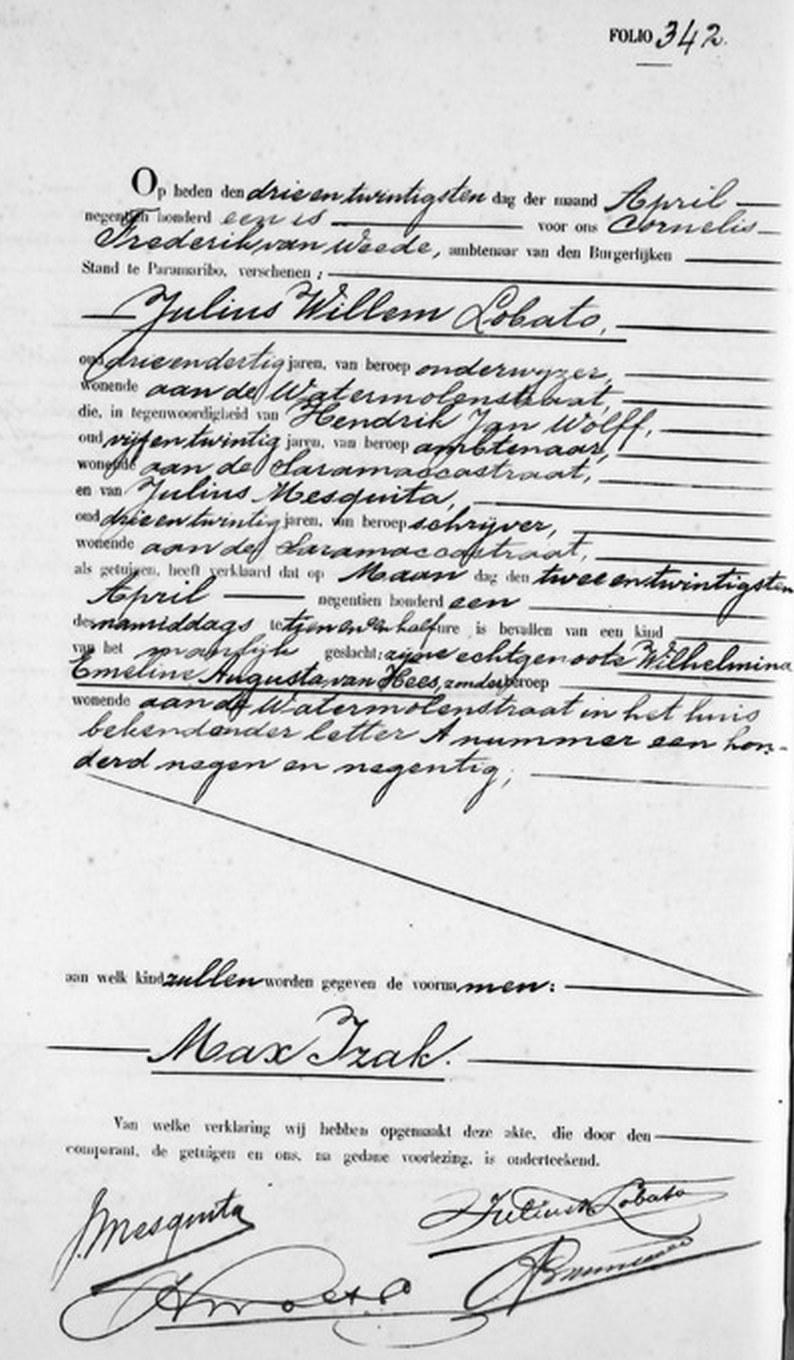 FOLIO 342.
Op heden den drie en twintigsten dag der maand April
negentien honderd een is voor ons Cornelis
Frederik van Weede, ambtenaar van den Burgerlijken
Stand te Paramaribo, verschenen :
Julius Willem Lobato,
oud drie en dertig jaren, van beroep onderwyzer,
wonende aan de Watermolenstraat,
die, in tegenwoordigheid van Hendrik Jan Wolff,
oud vijf en twintig jaren, van beroep ambtenaar,
wonende aan de Saramaccastraat,
en van Julius Mesquita,
oud drie en twintig jaren, van beroep schrijver,
wonende aan de Saramaccastraat,
als getuigen, heeft verklaard dat op Maan dag den twee en twintigsten
April negentien honderd een
des namiddags te tien en een half ure is bevallen van een kind
van het manlijk geslacht: zijne echtgenoote Wilhelmina
Emeline Augusta van Hees, zonder beroep
wonende aan de Watermolenstraat in het huis
bekend onder letter A nummer een hon-
derd negen en negentig;
aan welk kind zullen worden gegeven de voornamen:
Max Izak.
Van welke verklaring wij hebben opgemaakt deze akte, die door den
comparant, de getuigen en ons, na gedane voorlezing, is onderteekend.
J. Mesquita
Julius Lobato